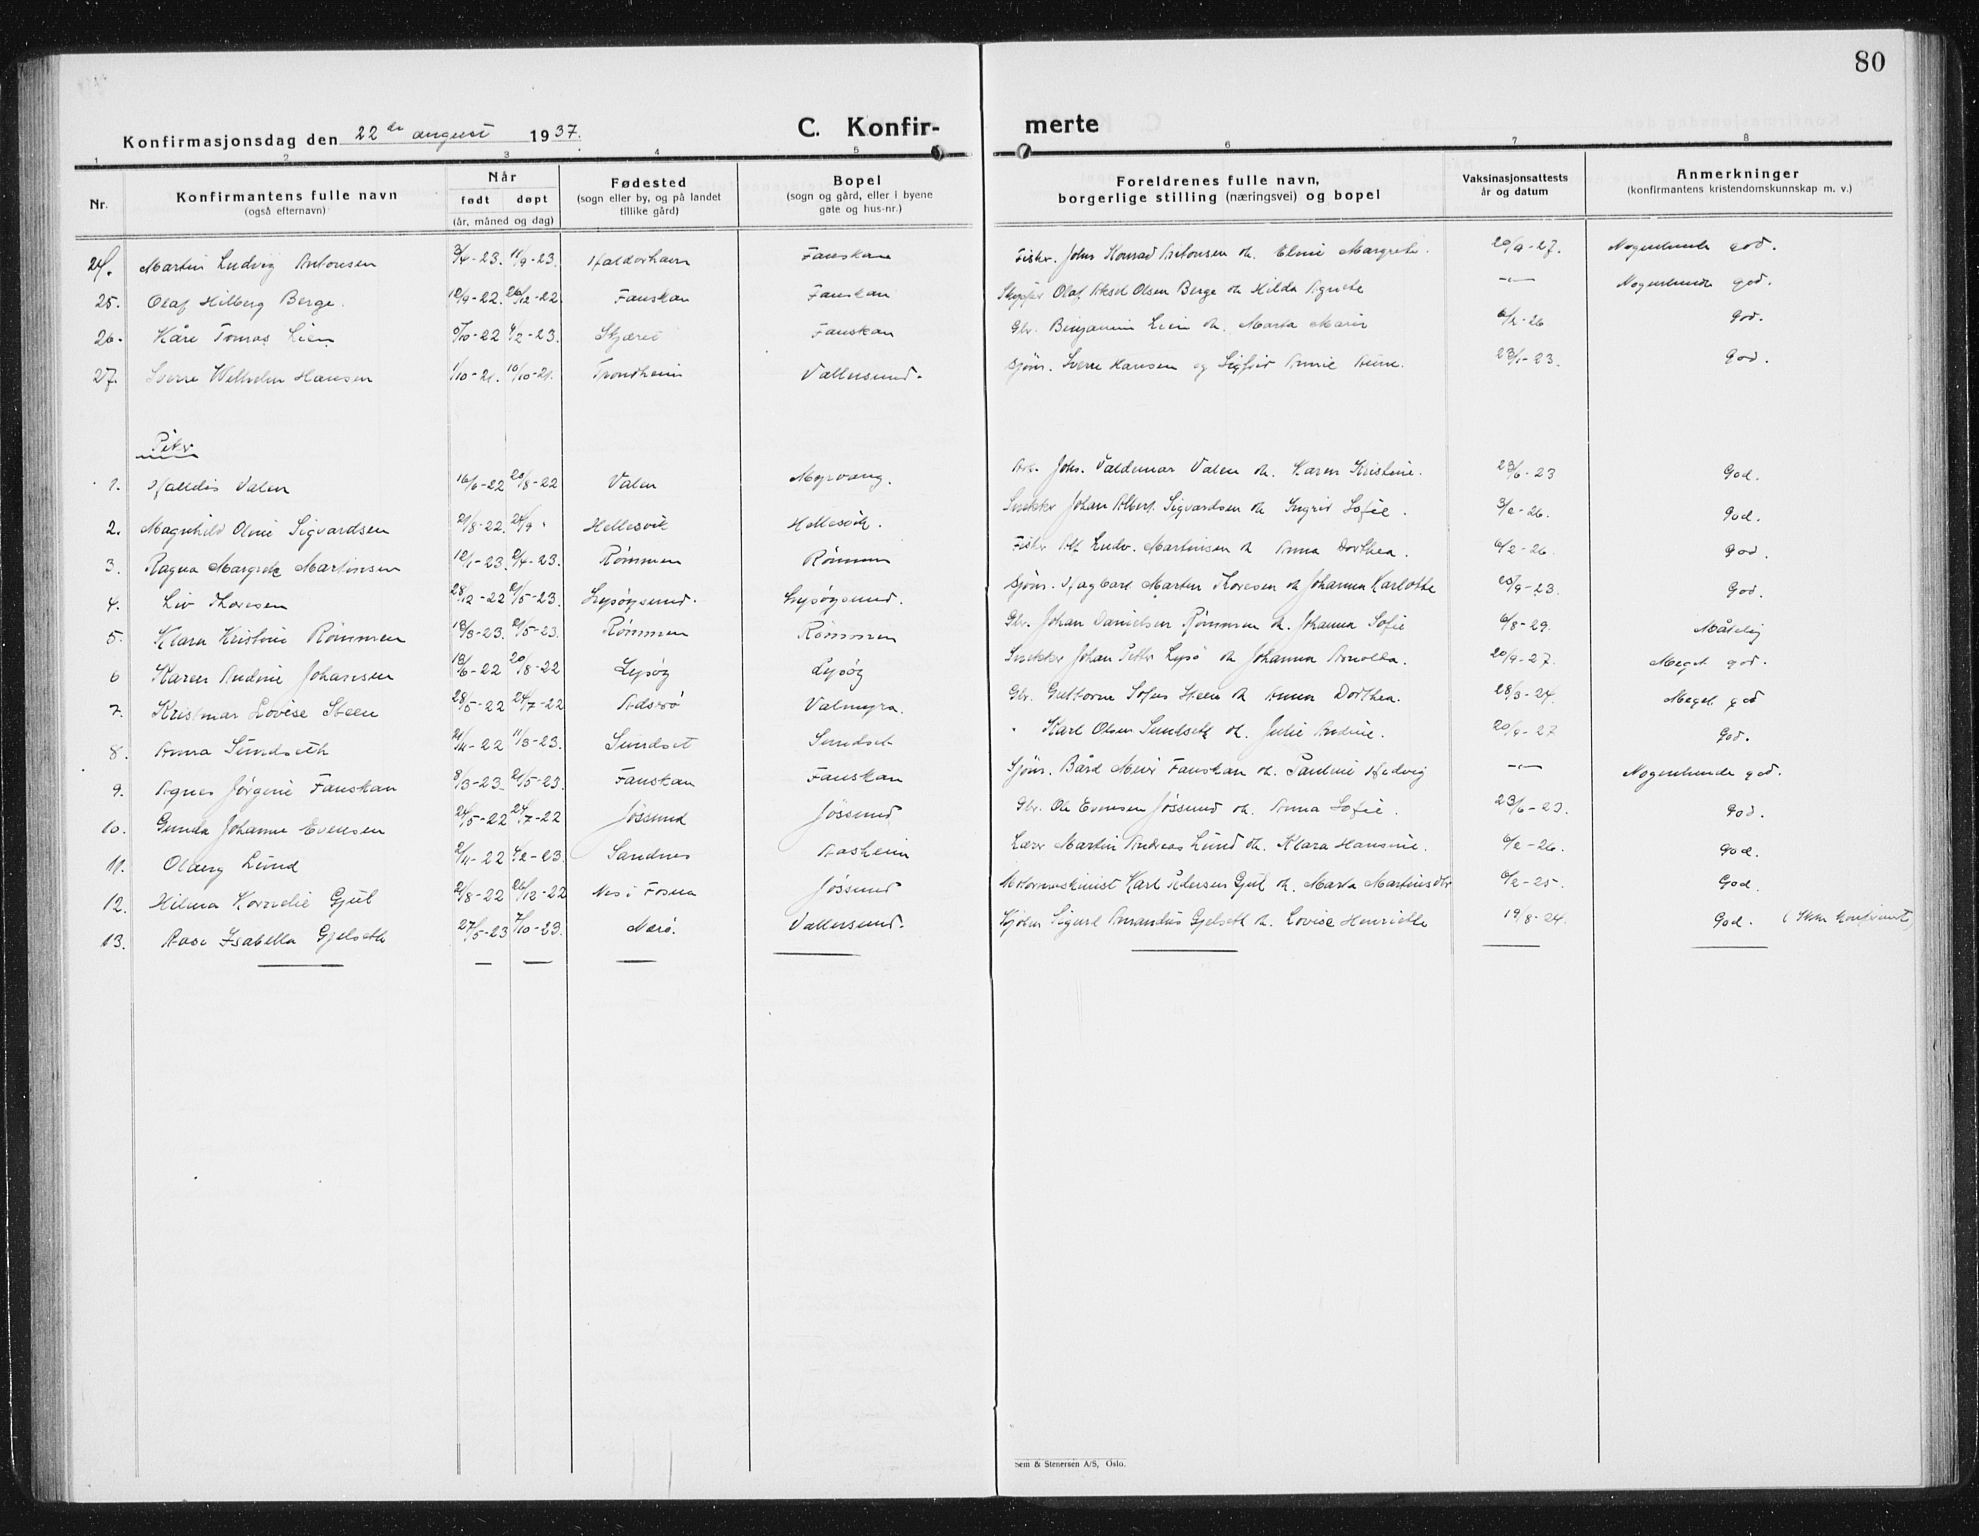 80
Konfirmasjonsdag den 22de august 1937.
C. Konfirmerte
1 2 3 4 5 6 7 8
Nr. Konfirmantens fulle navn (også efternavn) Når født døpt (år, måned og dag) Fødested (sogn eller by, og på landet tillike gård) Bopel (sogn og gård, eller i byene gate og hus-nr.) Foreldrenes fulle navn, borgerlige stilling (næringsvei) og bopel Vaksinasjonsattests år og datum Anmerkninger (konfirmantens kristendomskunnskap m. v.)
24. Martin Ludvig Antonsen 11/9-23. Fanskan Fisker John Konrad Antonsen Margrete. 20/9-27. Nogenlunde god.
25. Olaf Hilberg Berge. 10/9-22. 26/12-22 Fanskan Fanskan Skipper Olaf Aksel Olsen Berge Hilda Agnete -"- Nogenlunde god.
26. Kåre Tomas Lien Fanskan Gbr. Benjamin Lien Marta Marie God.
27. Sverre Wilhelm Hansen 1/10-21. 10/10-21. Trondheim Vallersund. Sjøm. Sverre Hansen og Sigfrid Annie Aune. 23/1-23. God.
Piker
1. Halldis Valen 16/6-22 20/8-22 Valen Myrvang. Arb. Johs. Valdemar Valen Karen Kristine. 23/6-23 God.
2. Magnhild Oline Sigvardsen 21/8-22. 24/9 " Hellesvik Hellesvik. Snekker Johan Albert Sigvardsen Ingrid Sofie. God.
3. Ragna Margrete Martinsen Rømmen Rømmen Fisker Alf Ludv. Martinsen Anna Dorthea. God.
4. Liv Thoresen 28/12-22 Lysøysund. Lysøysund. Sjøm. Martin Thoresen Johanna Karlotte 25/9-23. God.
5. Klara Kristine Rømmen Rømmen Rømmen Gbr. Johan Danielsen Rømmen Johanna Sofie Måtelig
6 Karen Andine Johansen 20/8-22 Lysøy Lysøy Snekker Johan Petter Lysø Johanna 20/9-27. Meget god.
7. Kristmar Lovise Steen 28/5-22 24/7-22 Valmyra. Gbr. Guttorm Sofus Steen Anna Dorthea. 28/3-24. Meget god
8. Anna Sundseth 11/3-23. Sundset Sundset " Karl Olsen Sundseth Julie Andrine. 20/9-27 God.
9. Agnes Jørgine Fanskan 8/3-23. 21/5-23. Fanskan Fanskan Sjøm. Bård Meier Fanskan Pauline Hedvig -"- Nogenlunde god.
10. Gunda Johanne Evensen 24/5-22 24/7-22 Jøssund Jøssund. Gbr. Ole Evensen Jøssund Anna Sofie. 23/6-23. God.
11. Olaug Lund Sandnes Aasheim Lærer Martin Andreas Lund Klara Hansine. God.
12. Hilma Kornelie Gjul 21/8-22 26/12-22 Nes i Fosna Jøssund Motormaskinist Karl Pedersen Gjul Marta Martinsdtr God.
13. Aase Isabella Gjelseth 27/5-23 7/10-23. Nærø. Vallersund. Sigurd Amandus Gjelseth Lovise Henriette 19/8-24. God.
Sem & Stenersen A/S, Oslo.